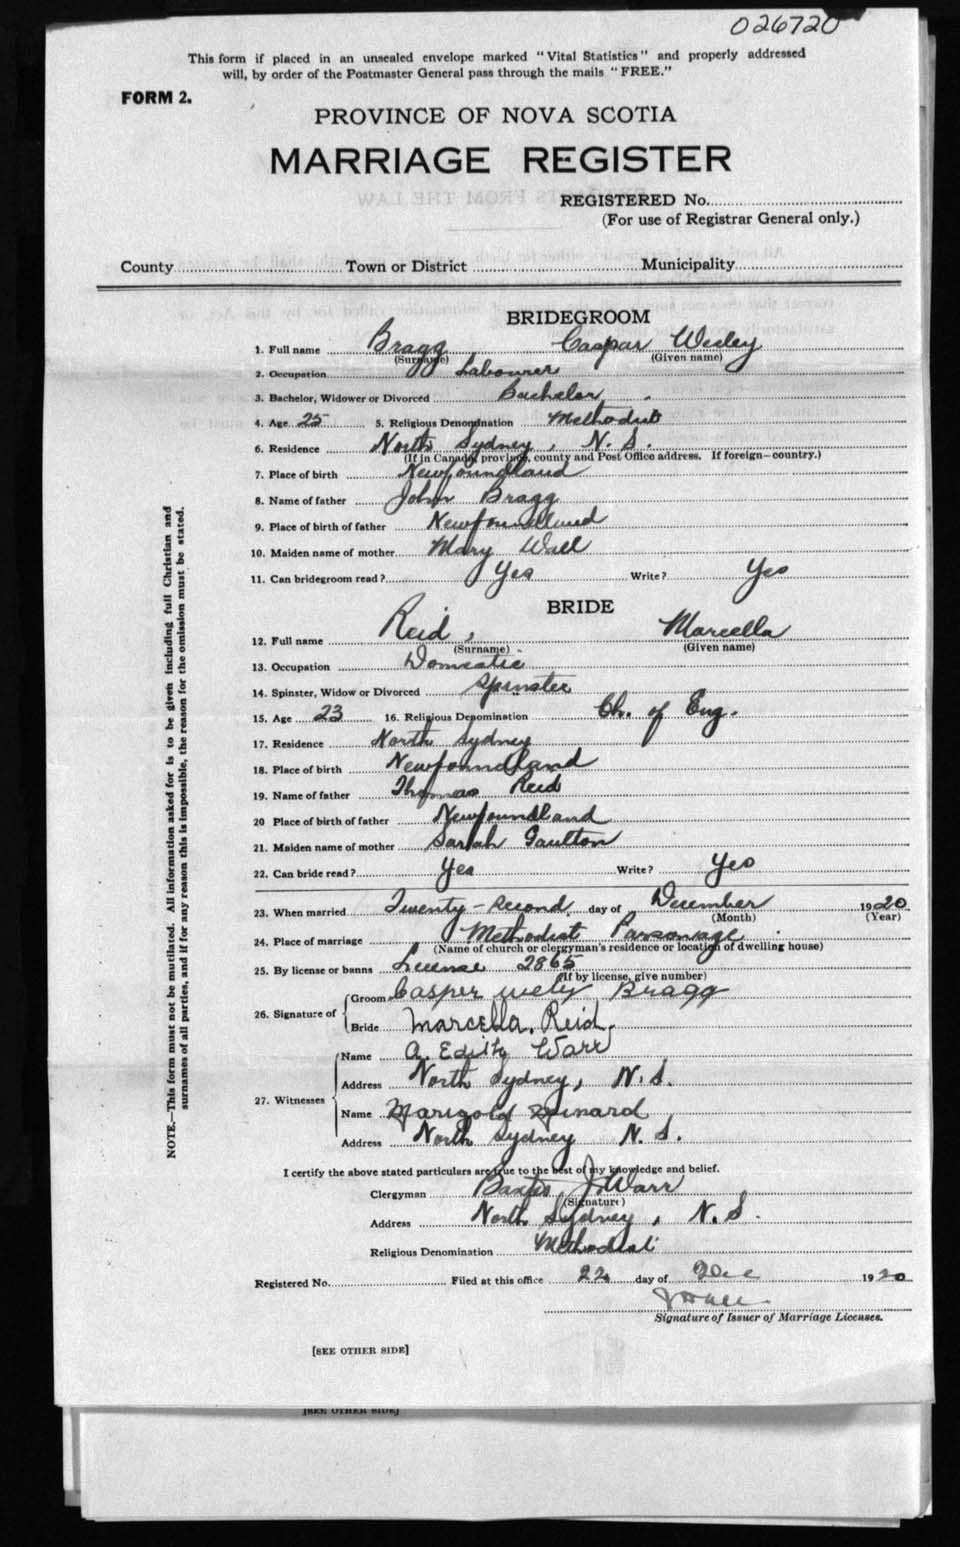 026720
This form if placed in an unsealed envelope marked "Vital Statistics" and properly addressed
will, by order of the Postmaster General pass through the mails "FREE."
FORM 2.
PROVINCE OF NOVA SCOTIA
MARRIAGE REGISTER
REGISTERED No.
(For use of Registrar General only.)
County Town or District Municipality
BRIDEGROOM
1. Full name Bragg Caspar Wesley
(Surname) (Given name)
2. Occupation Labourer
3. Bachelor, Widower or Divorced Bachelor
4. Age 25 5. Religious Denomination Methodist
6. Residence North Sydney, N. S.
(If in Canada, province, county and Post Office address. If foreign—country.)
7. Place of birth Newfoundland
8. Name of father John Bragg
9. Place of birth of father Newfoundland
10. Maiden name of mother Mary Wall
11. Can bridegroom read? Yes Write? Yes
BRIDE
12. Full name Reid, Marcella
(Surname) (Given name)
13. Occupation Domestic
14. Spinster, Widow or Divorced Spinster
15. Age 23 16. Religious Denomination Ch. of Eng.
17. Residence North Sydney
18. Place of birth Newfoundland
19. Name of father Thomas Reid
20 Place of birth of father Newfoundland
21. Maiden name of mother Sarah Gaulton
22. Can bride read? Yes Write? Yes
23. When married Twenty-Second day of December 1920
(Month) (Year)
24. Place of marriage Methodist Parsonage
(Name of church or clergyman's residence or location of dwelling house)
25. By license or banns License 2865
(If by license, give number)
26. Signature of
Groom Casper wely Bragg
Bride Marcella. Reid.
27. Witnesses
Name A. Edith Warr
Address North Sydney, N. S.
Name Marigold
Address North Sydney N. S.
I certify the above stated particulars are true to the best of my knowledge and belief.
Clergyman J. Warr
(Signature)
Address North Sydney, N. S.
Religious Denomination Methodist
Registered No. Filed at this office 22 day of Dec 1920
Signature of Issuer of Marriage Licenses.
[SEE OTHER SIDE]
[SEE OTHER SIDE]
NOTE.—This form must not be mutilated. All information asked for is to be given including full Christian and
surnames of all parties, and if for any reason this is impossible, the reason for the omission must be stated.